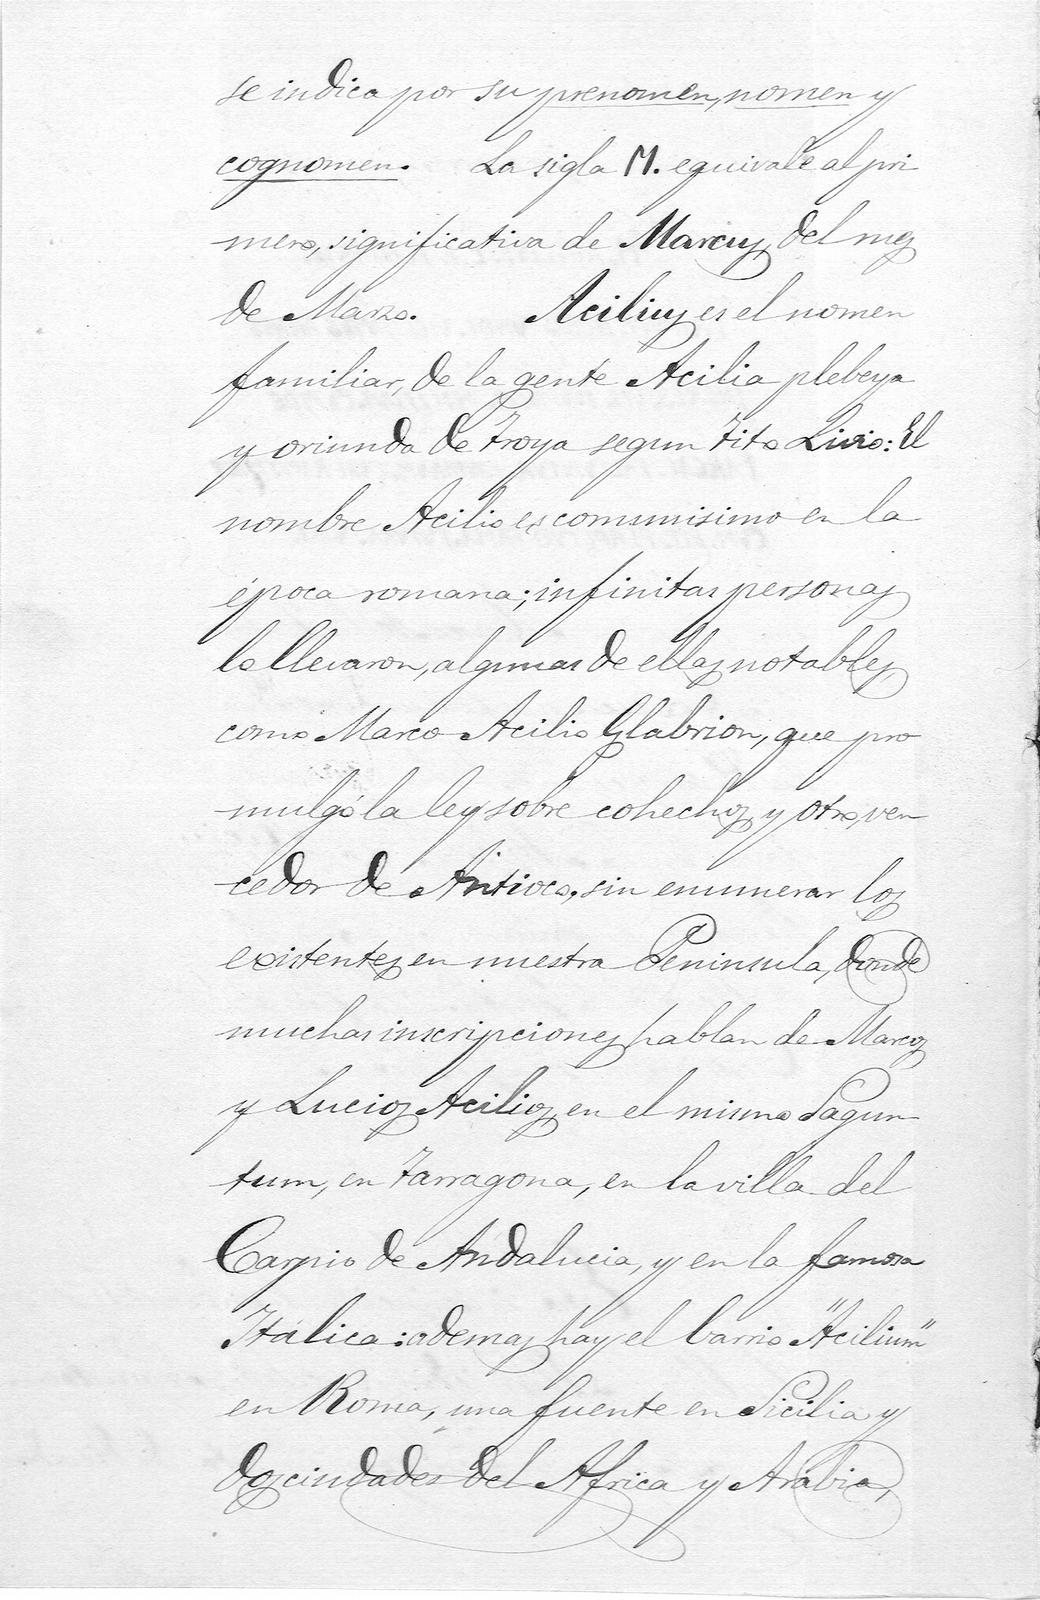 se indica por su prenomen, nomen y
cognomen. La sigla M. equivale al pri
mero, significativa de Marcus, del mes
de Marzo. Acilius es el nomen
familiar, de la gente Acilia plebeya
y oriunda de Troya segun Tito Livio: El
nombre Acilio es comunisimo en la
época romana; infinitas personas
lo llevaron, algunas de ellas notables
como Marco Acilio Glabrion, que pro
mulgó la ley sobre cohechos y otro, ven
cedor de Antioco, sin enumerar los
existentes en nuestra Peninsula, donde
muchas inscripciones hablan de Marcos
y Lucios Acilios en el mismo Sagun
tum, en Tarragona, en la villa del
Carpio de Andalucia, y en la famosa
Itálica: ademas hay el barrio "Acilium"
en Roma, una fuente en Sicilia y
dos ciudades del Africa y Arabia,